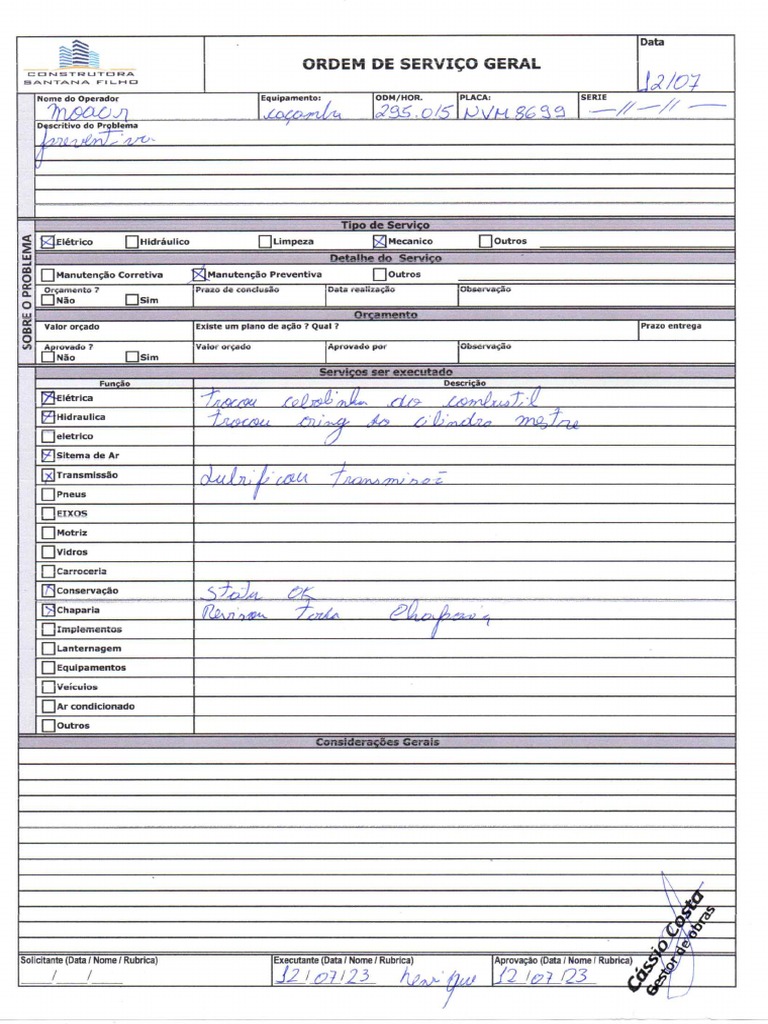 CONSTRUTORA
SANTANA FILHO
ORDEM DE SERVIÇO GERAL
Data
12/07
Nome do Operador Equipamento: ODM/HOR. PLACA: SERIE
Moacir caçamba 295.015 NVM8699 —//—//—
Descritivo do Problema
preventiva
SOBRE O PROBLEMA
Tipo de Serviço
Elétrico Hidráulico Limpeza Mecanico Outros
Detalhe do Serviço
Manutenção Corretiva Manutenção Preventiva Outros
Orçamento ? Prazo de conclusão Data realização Observação
Não Sim
Orçamento
Valor orçado Existe um plano de ação ? Qual ? Prazo entrega
Aprovado ? Valor orçado Aprovado por Observação
Não Sim
Serviços ser executado
Função Descrição
Elétrica Trocou cebolinha do combustil
Hidraulica trocou oring do cilindro mestre
eletrico
Sitema de Ar
Transmissão Lubrificou
Pneus
EIXOS
Motriz
Vidros
Carroceria
Conservação OK
Chaparia Revisou toda Chaparia
Implementos
Lanternagem
Equipamentos
Veículos
Ar condicionado
Outros
Considerações Gerais
Solicitante (Data / Nome / Rubrica) Executante (Data / Nome / Rubrica) Aprovação (Data / Nome / Rubrica)
/ / 12/07/23 henrique 12/07/23
Cássio Costa
Gestor de obras